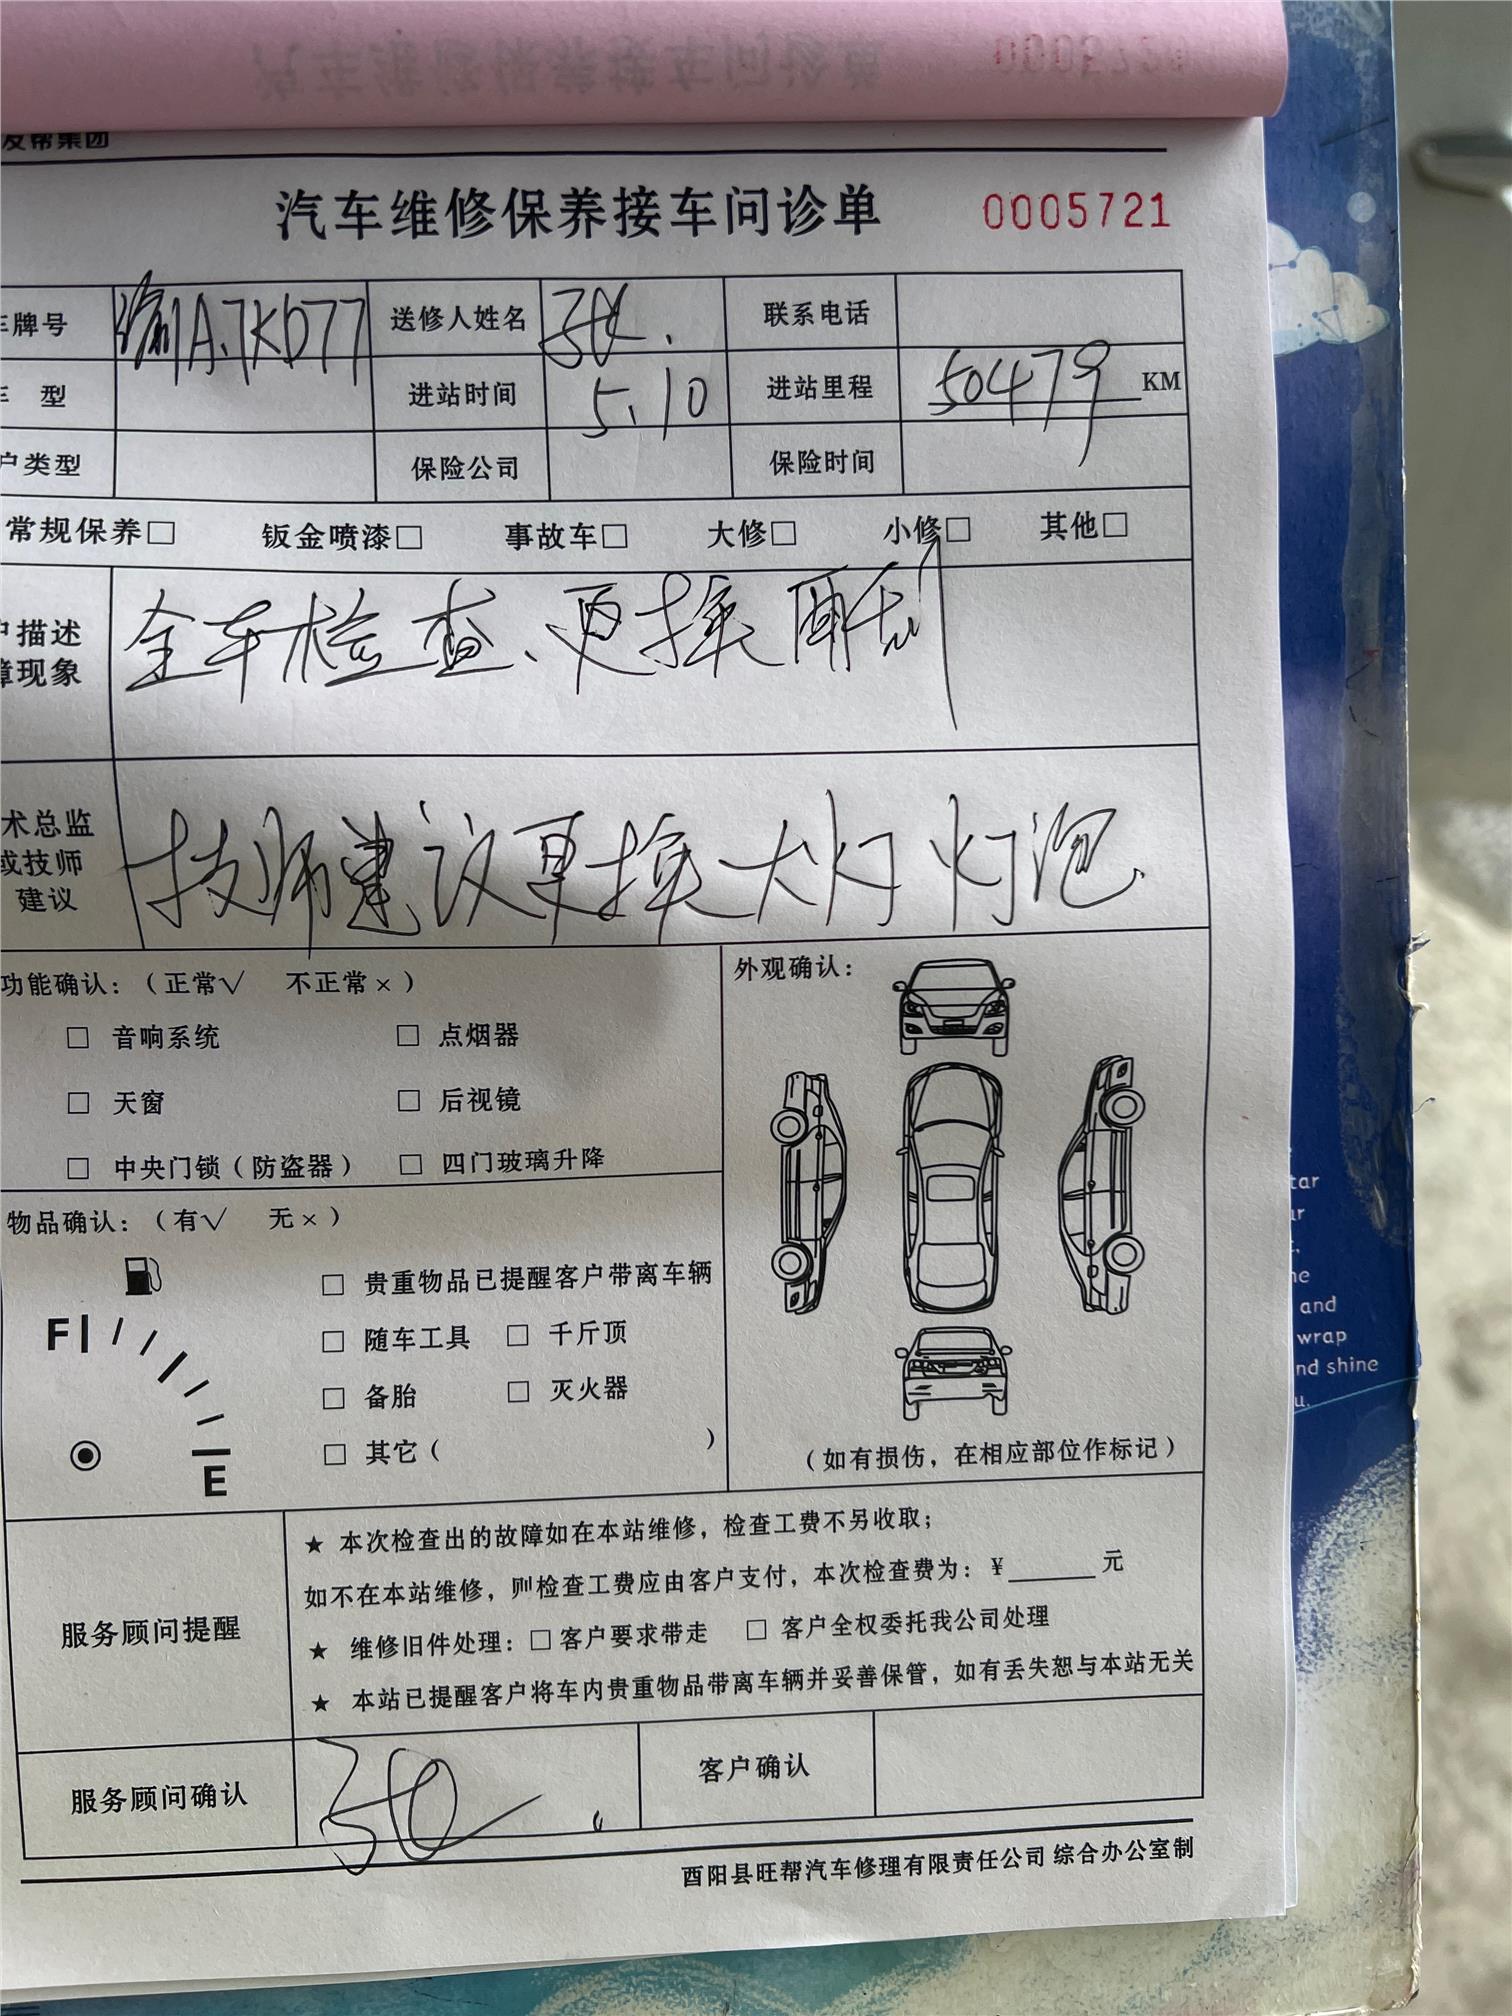 友帮集团
汽车维修保养接车问诊单 0005721
车牌号 渝A.7KD77 送修人姓名 联系电话
车 型 进站时间 5.10 进站里程 50479 KM
户类型 保险公司 保险时间
常规保养□ 钣金喷漆□ 事故车□ 大修□ 小修□ 其他□
户描述
障现象
全车检查、更换雨刮
术总监
或技师
建议
技师建议更换大灯灯泡.
功能确认：（正常√ 不正常×）
□ 音响系统 □ 点烟器
□ 天窗 □ 后视镜
□ 中央门锁（防盗器） □ 四门玻璃升降
外观确认：
（如有损伤，在相应部位作标记）
物品确认：（有√ 无×）
F
E
□ 贵重物品已提醒客户带离车辆
□ 随车工具 □ 千斤顶
□ 备胎 □ 灭火器
□ 其它（ ）
服务顾问提醒
★ 本次检查出的故障如在本站维修，检查工费不另收取；
如不在本站维修，则检查工费应由客户支付，本次检查费为：¥______元
★ 维修旧件处理：□客户要求带走 □ 客户全权委托我公司处理
★ 本站已提醒客户将车内贵重物品带离车辆并妥善保管，如有丢失恕与本站无关
服务顾问确认 客户确认
酉阳县旺帮汽车修理有限责任公司 综合办公室制
and
wrap
nd shine
u.